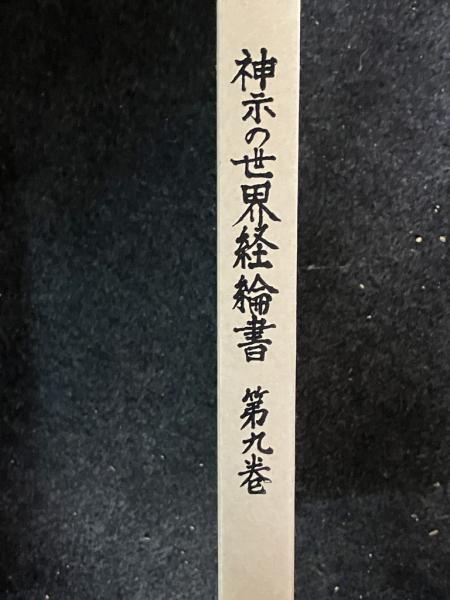 神示の世界経綸書 第九巻